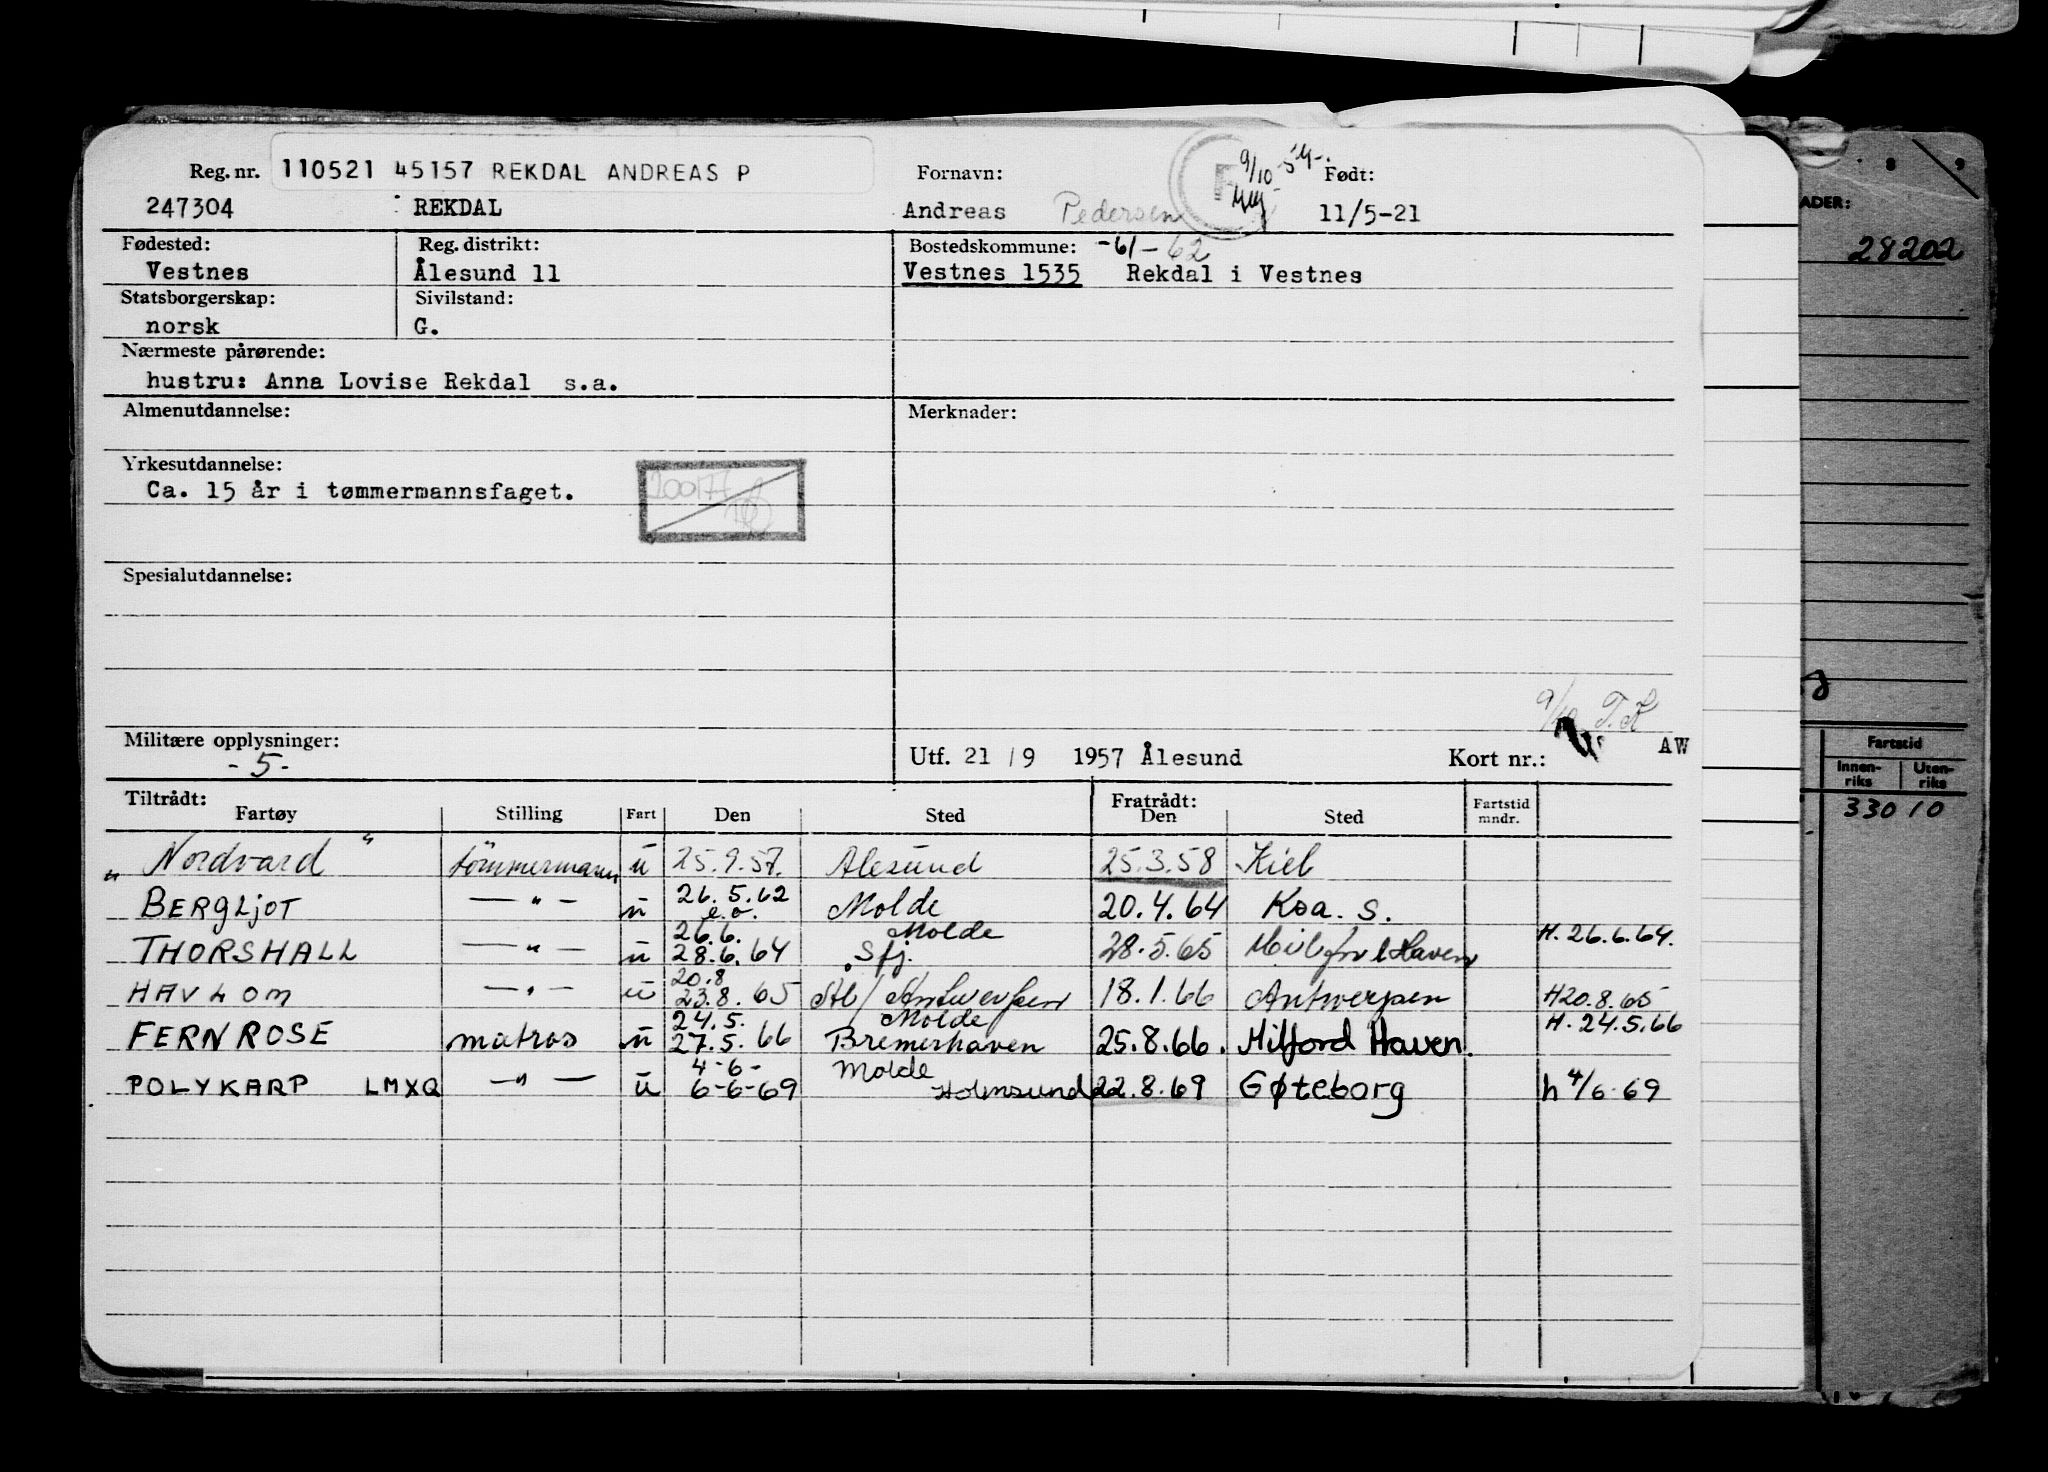 Reg. nr. 110521 45157 REKDAL ANDREAS P Fornavn: 9/10-54. Født:
247304 REKDAL Andreas Pedersen 11/5-21
Fødested: Reg. distrikt: Bostedskommune: -61-62
Vestnes Ålesund 11 Vestnes 1535 Rekdal i Vestnes
Statsborgerskap: Sivilstand:
norsk G.
Nærmeste pårørende:
hustru: Anna Lovise Rekdal s.a.
Almenutdannelse: Merknader:
Yrkesutdannelse:
Ca. 15 år i tømmermannsfaget.
Spesialutdannelse:
9/10 T.K
Militære opplysninger: AW
-5- Utf. 21/9 1957 Ålesund Kort nr.:
Tiltrådt: Fratrådt:
Fartøy Stilling Fart Den Sted Den Sted Fartstid mndr.
"Nordvard" tömmermann u 25.9.57. Alesund 25.3.58 Kiel
26.5.62
BERGLJOT —"— u e.o. Molde 20.4.64 Koa. S.
26.6. Molde H. 26.6.64.
THORSHALL —"— u 28.6.64 Sfj. 28.5.65 Milford Haven
20.8
HAVLOM —"— u 23.8.65 Al/Antwerpen 18.1.66 Antwerpen H20.8.65
24.5. Molde H. 24.5.66
FERNROSE matros u 27.5.66 Bremerhaven 25.8.66. Milford Haven.
4-6- Molde
POLYKARP LMXQ —"— u 6-6-69 Holmsund 22.8.69 Gøteborg h 4/6-69
ADER:
28202
Fartstid
Innen-riks Uten-riks
330 10